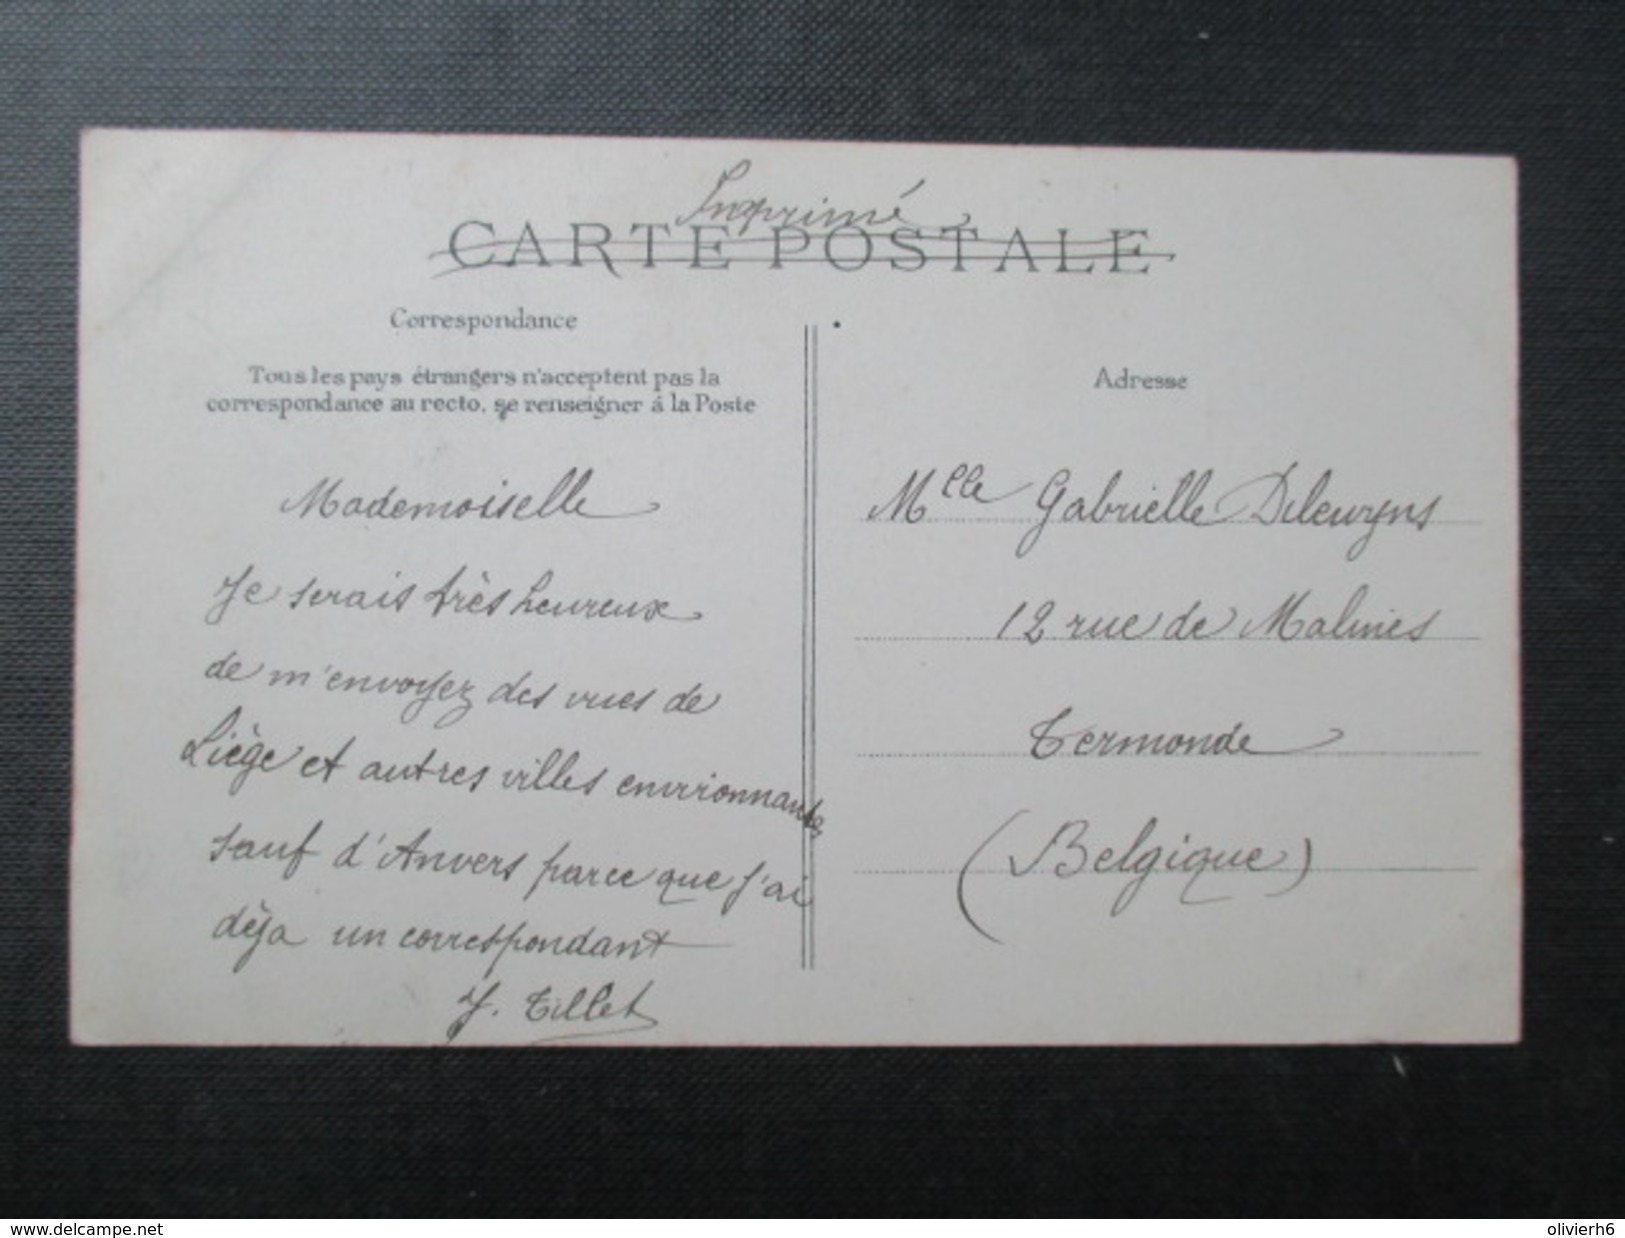 Imprimé
CARTE POSTALE
Correspondance
Tous les pays étrangers n'acceptent pas la
correspondance au recto, se renseigner à la Poste
Mademoiselle
Je serais très heureux
de m'envoyez des vues de
Liège et autres villes environnantes
sauf d'Anvers parce que j'ai
déja un correspondant
J. Tillet
Adresse
Mlle Gabrielle
12 rue de Malines
Termonde
(Belgique)
www.delcampe.net
olivierh6